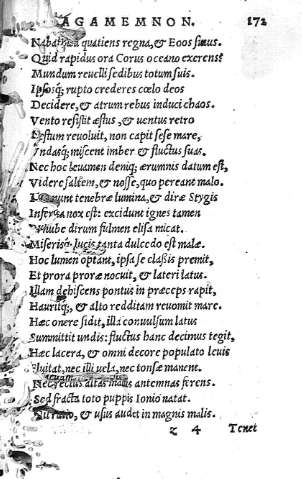 AGAMEMNON. 172
quatiens regna, & Eoos sinus.
Quid rapidus ora Corus oceano exerens?
Mundum reuelli sedibus totum suis.
Ipsosq; rupto crederes cœlo deos
Decidere, & atrum rebus induci chaos.
Vento resistit æstus, & uentus retro
Æstum reuoluit, non capit sese mare,
Vndasq; miscent imber & fluctus suas.
Nec hoc leuamen deniq; ærumnis datum est,
Videre saltem, & nosse, quo pereant malo.
tenebræ lumina, & diræ Stygis
Inferna nox est: excidunt ignes tamen
nube dirum fulmen elisa micat.
Miserisq; lucis tanta dulcedo est malæ.
Hoc lumen optant, ipsa se classis premit,
Et prora proræ nocuit, & lateri latus.
Illam dehiscens pontus in præceps rapit,
Hauritq;, & alto redditam reuomit mare.
Hæc onere sidit, illa conuulsum latus
Summittit undis: fluctus hanc decimus tegit,
Hæc lacera, & omni decore populato leuis
Fluitat, nec illi uela, nec tonsæ manent.
Nec rectus altas malus antemnas ferens.
Sed fracta toto puppis Ionio natat.
ratio, & usus audet in magnis malis.
z 4 Tenet